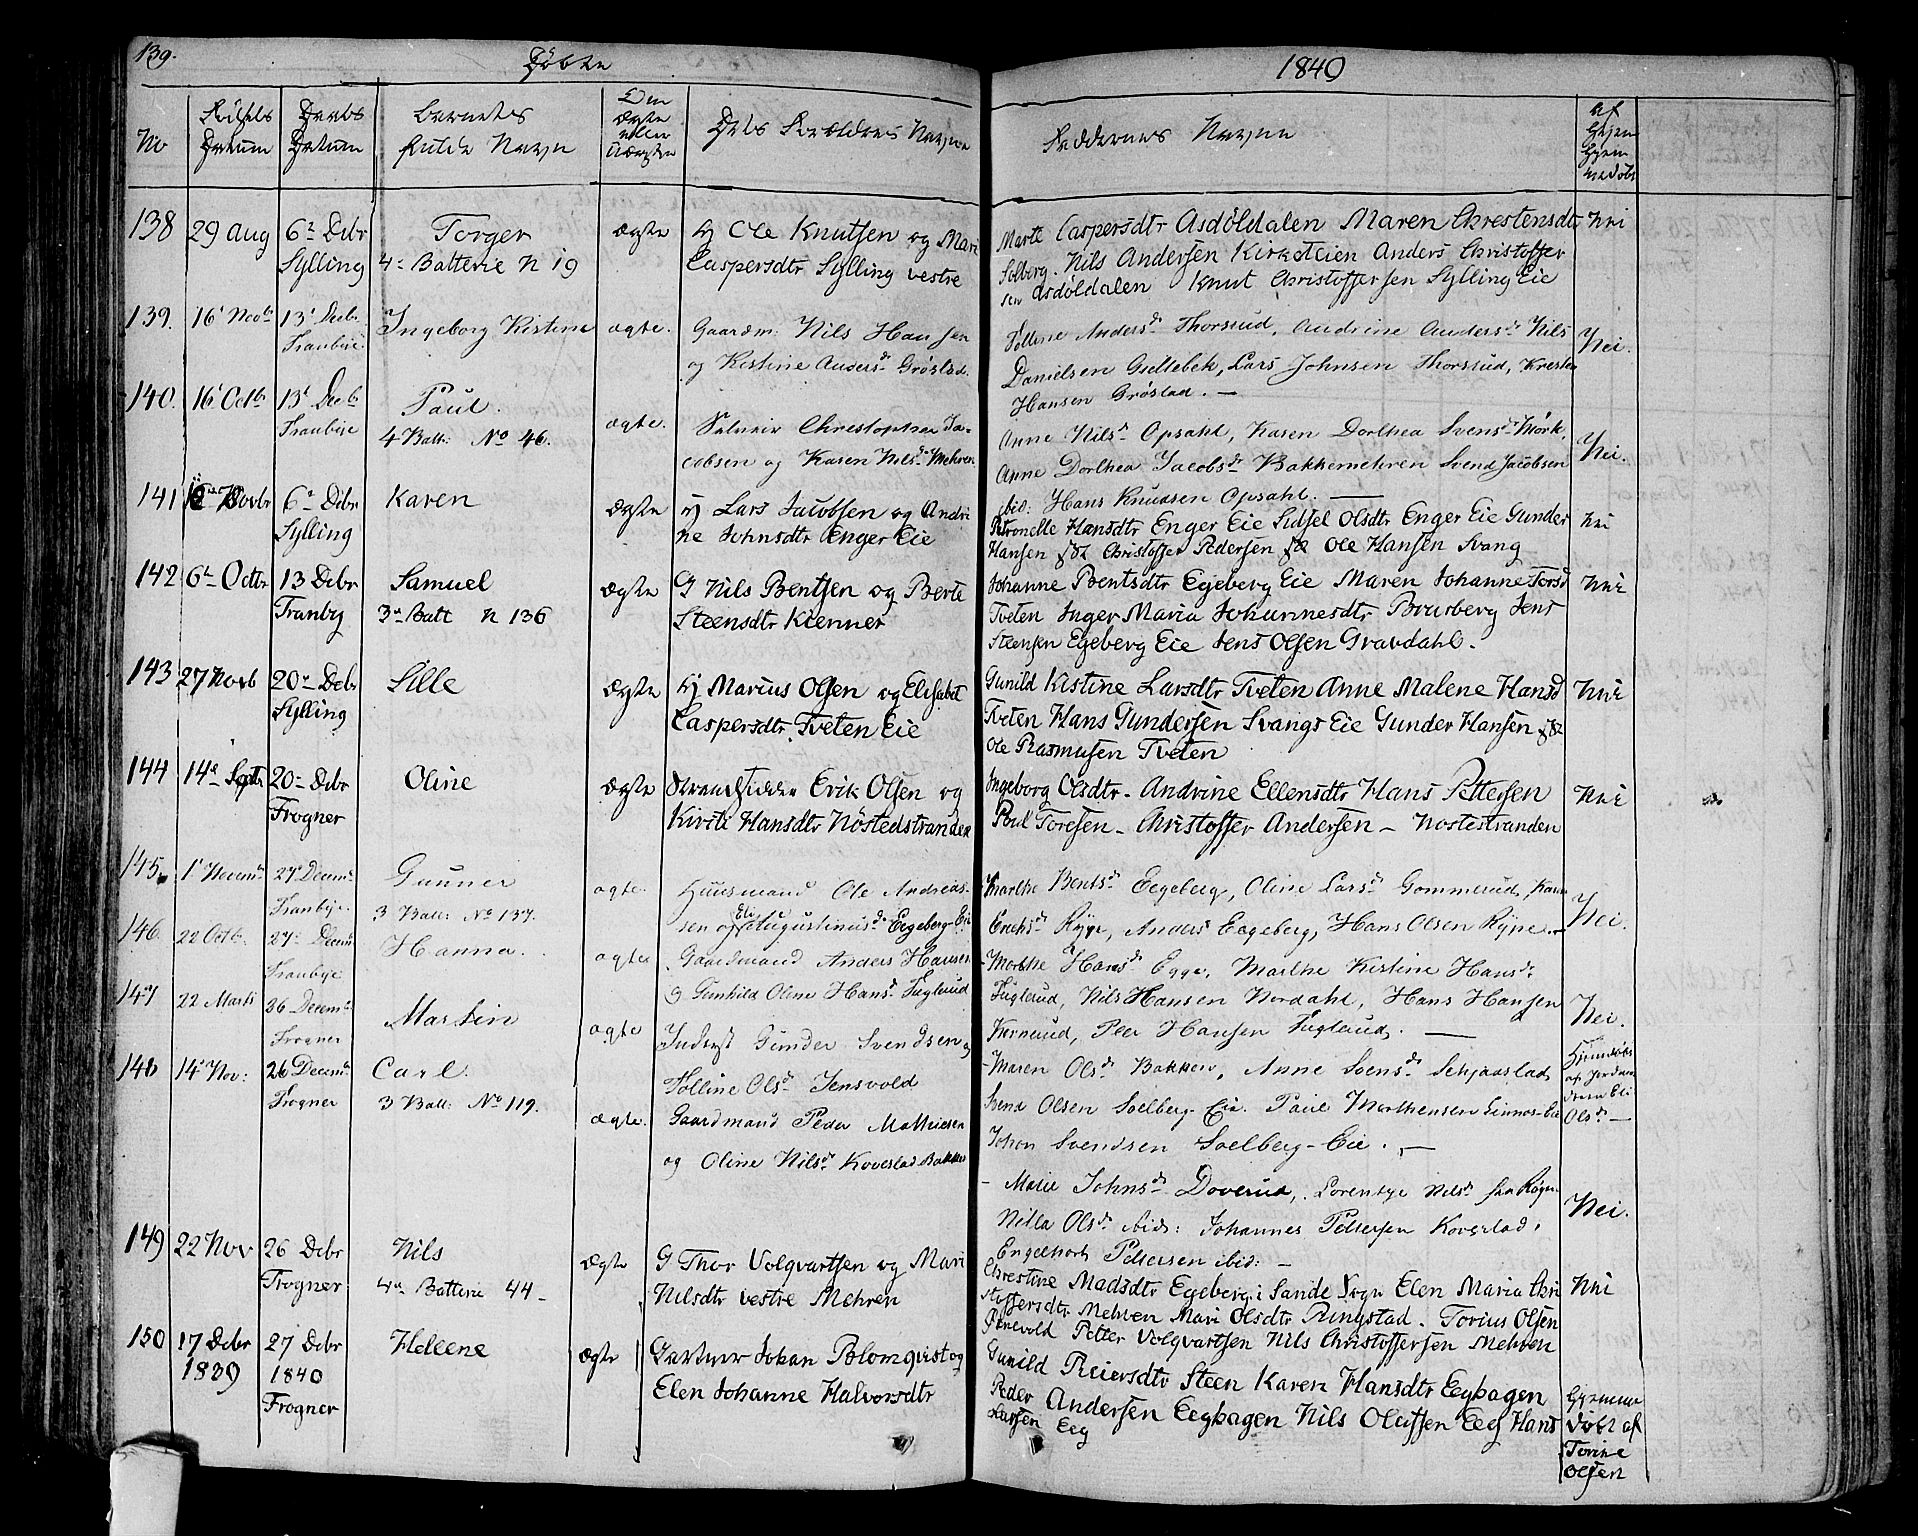 139.
Døbte
1840
No
Fødsels Datum
Daabs Datum
Barnets fulde Navn
Om Ægte eller Uægte
Dets Forældres Navne
Faddernes Navne
af hjem
138 29 Aug 6te Debr Sylling
Torger
4de Batterie N 19
Ægte
Ole Knutsen og Mari
Caspersdtr Sylling vestre
Marte Caspersdtr Asdöldalen Maren Chrestensdtr
Solberg. Nils Andersen Kirksteien Anders Christoffer
sen Asdöldalen Knut Christoffersen Sylling Eie
nei
139. 16 Novbr 13 Decbr Tranbye
Ingeborg Kistine
ægte.
Gaardm. Nils Hansen
og Kistine Andersd. Grøstad.
Andersd. Thorsrud, Andrine Andersd. Nils
Danielsen Gullebek, Lars Johnsen Thorsrud, Kresten
Hansen Grøstad. —
Nei.
140. 16 Octb 13 Decb Tranbye
Paul.
4 Batt: No 46.
ægte.
Christopher Ja-
cobsen og Karen Nilsd. Mehren
Anne Nilsd. Opsahl, Karen Dorthea Svensd. Mörk,
Anne Dorthea Jacobsd. Bakkemehren Svend Jacobsen
ibid: Hans Knudsen Opsahl. —
Nei.
141 Novbr 6te Debr Sylling
Karen
Ægte
Lars Jacobsen og Andri
ne Johnsdtr Enger Eie
Petronelle Hansdtr Enger Eie Sidsel Olsdtr Enger Eie Gunder
Hansen Christoffer Pedersen Ole Hansen Svang
nei
142 6te Octbr 13 Debr Tranby
Samuel
3die Batt N 136
Ægte
G Nils Bentsen og Berte
Steensdtr Kienner
Johanne Bentsdtr Egeberg Eie Maren Johanne Torsd
Tveten Inger Maria Johannesdtr Brusberg Jens
Steensen Egeberg Eie Jens Olsen Gravdahl.
nei
143 27 Novb 20de Debr Sylling
Lille
Ægte
Marius Olsen og Elisabet
Caspersdtr Tveten Eie
Gunild Kistine Larsdtr Tveten Anne Malene Hansd
Tveten Hans Gundersen Svangs Eie Gunder Hansen
Ole Rasmusen Tveten
nei
144 14de Septbr 20de Debr Frogner
Oline
Ægte
Strandsidder Erik Olsen og
Kirsti Hansdtr Nöstedstranden
Ingeborg Olsdtr. Andrine Ellensdtr Hans Pettersen
Poul Toresen - Christoffer Andersen - Nostestranden
nei
145. 1 Novem. 27 Decem. Tranbye.
Gunner
3 Batt: No 137.
ægte.
Huusmand Ole Andreas-
sen og Eli Augustinusd. Eegeberg-Eie
Marthe Bentsd. Eegeberg, Oline Larsd. Gommerud, Karen
Erichsd. Rype, Anders Eegeberg, Hans Olsen Rype. —
Nei.
146. 22 Octb. 27 Decem. Tranbye
Hanna.
ægte
Gaardmand Anders Hansen
og Gunhild Oline Hansd. Fuglerud
- Marthe Hansd. Egge, Marthe Kistine Hansd.
Fuglerud, Nils Hansen Nordahl, Hans Hansen
Kerneud, Peer Hansen Fuglerud. —
Nei.
147 22 Marti 26 Decem. Frogner
Martin
ægte
Inderst Gunder Svendsen og
Tolline Olsd. Jensvold
- Maren Olsd. Bakken, Anne Svensd. Schjaastad,
Svend Olsen Solberg-Eie. Paul Morthensen Linnes-Eie
Johan Svendsen Solberg-Eie. —
Hjemdøbt af Jordemoderen Eli Olsd. —
148 14 Nov: 26 Decem. Frogner
Carl.
3 Batt: No 119.
ægte.
Gaardmand Peder Mathiesen
og Oline Nilsd. Kovestad Bakken
- Marie Johnsd. Doverud, Lorentze Nilsd.
Nilla Olsd. ibid: Johannes Pettersen Kovestad,
Engelhart Pettersen ibid: —
Nei.
149 22 Nov 26 Debr Frogner
Nils
4de Batterie 44 -
Ægte
G Thor Volqvartsen og Mari
Nilsdtr vestre Mehren
Chrestine Madsdtr Egeberg i Sande Sogn Elen Maria Chri
stoffersdtr Mehren Mari Olsdtr Ringstad. Torius Olsen
Petter Volqvartsen Nils Christoffersen Mehren
nei
150 17 Debr 1839 27 Debr 1840 Frogner
Heleene
Ægte
Gartner Johan Blomqvist og
Elen Johanne Halvorsdtr
Gunild Reiersdtr Steen Karen Hansdtr Eeghagen
Peder Andersen Eeghagen Nils Olufsen Eeg Hans
Larsen Eeg
Hjemme døbt af Torine Olsen